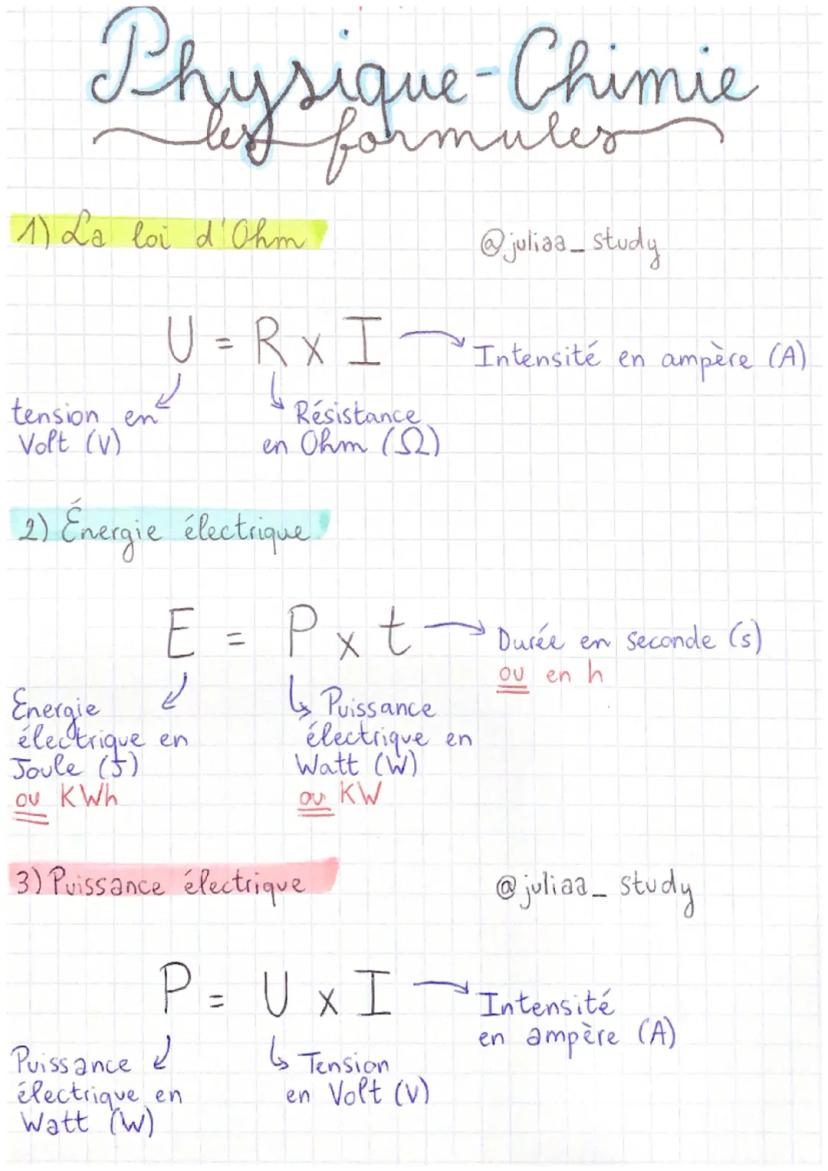 Physique-Chimie
les formules
1) La loi d'Ohm
@juliaa_study
U = R x I
Intensité en ampère (A)
tension en
Volt (V)
Résistance
en Ohm (Ω)
2) Énergie électrique
E = P x t
Durée en seconde (s)
ou en h
Energie
électrique en
Joule (J)
ou KWh
Puissance
électrique en
Watt (W)
ou KW
3) Puissance électrique
@juliaa_study
P = U x I
Intensité
en ampère (A)
Puissance
électrique en
Watt (W)
Tension
en Volt (V)